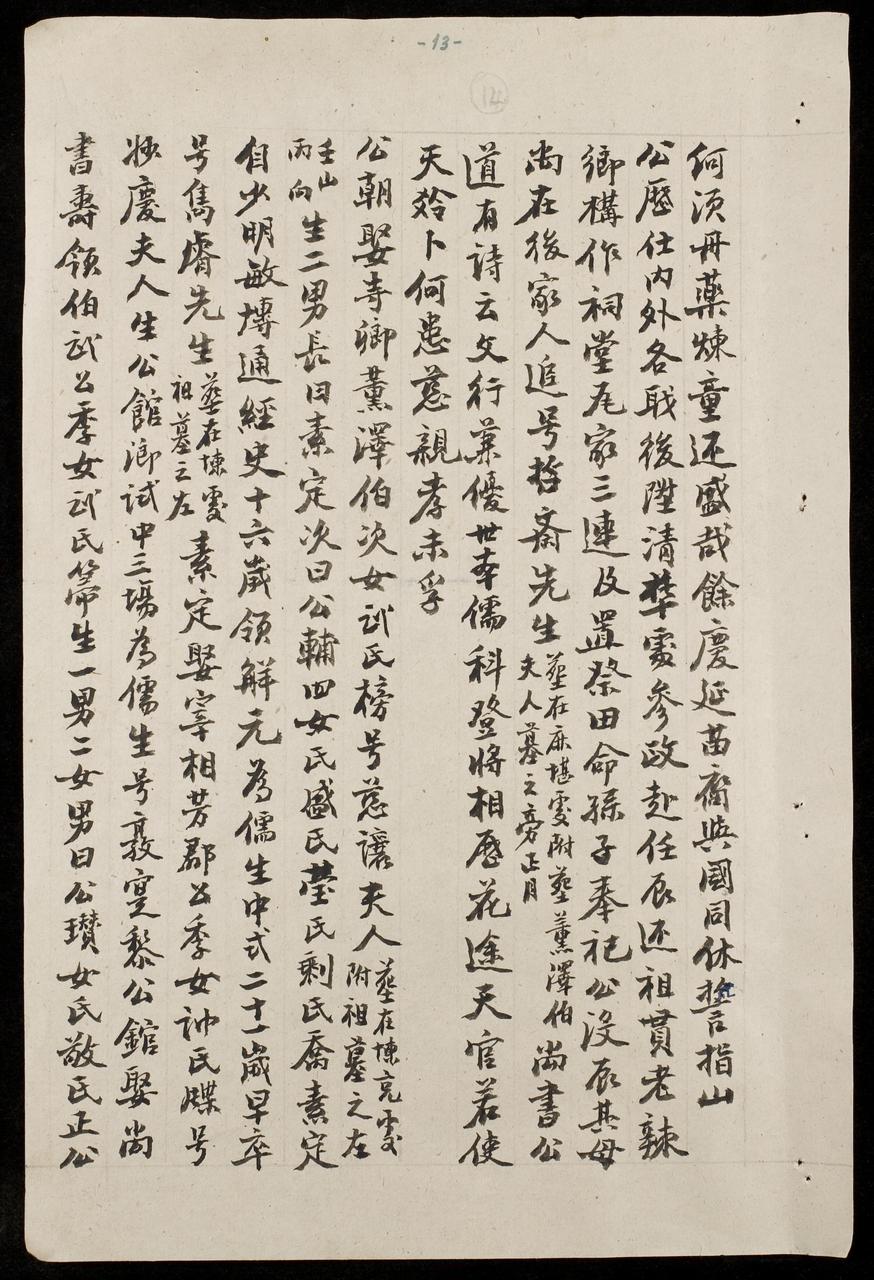 -13-
14
何須丹藥煉童还盛哉餘慶延苗裔與國同休誓指山
公歷仕内外各耺後陞清華處參政赴任辰还祖貫老辣
鄉構作祠堂瓦家三連及置祭田命孫子奉祀公没辰其母
尚在後家人追号哲斎先生墓在麻堪處附葬薰澤伯夫人墓之旁正月尚書公
道有詩云文行兼優世夲儒科登將相歷花途天官若使
天夸卜何患慈親孝未孚
公朝娶寺卿薰澤伯次女武氏榜号慈讓夫人墓在堜亮處附祖墓之左
壬山丙向生二男長曰素定次曰公輔四女氏盛氏瑩氏剩氏喬素定
自少明敏博通經史十六歲領解元為儒生中式二十一歲早卒
号雋膚先生墓在堜處祖墓之左素定娶宰相芳郡公季女 氏 号
 慶夫人生公館鄉試中三場為儒生号敦寔黎公舘娶尚
書壽領伯武公季女武氏 生一男二女男曰公瓚女氏敬氏正公